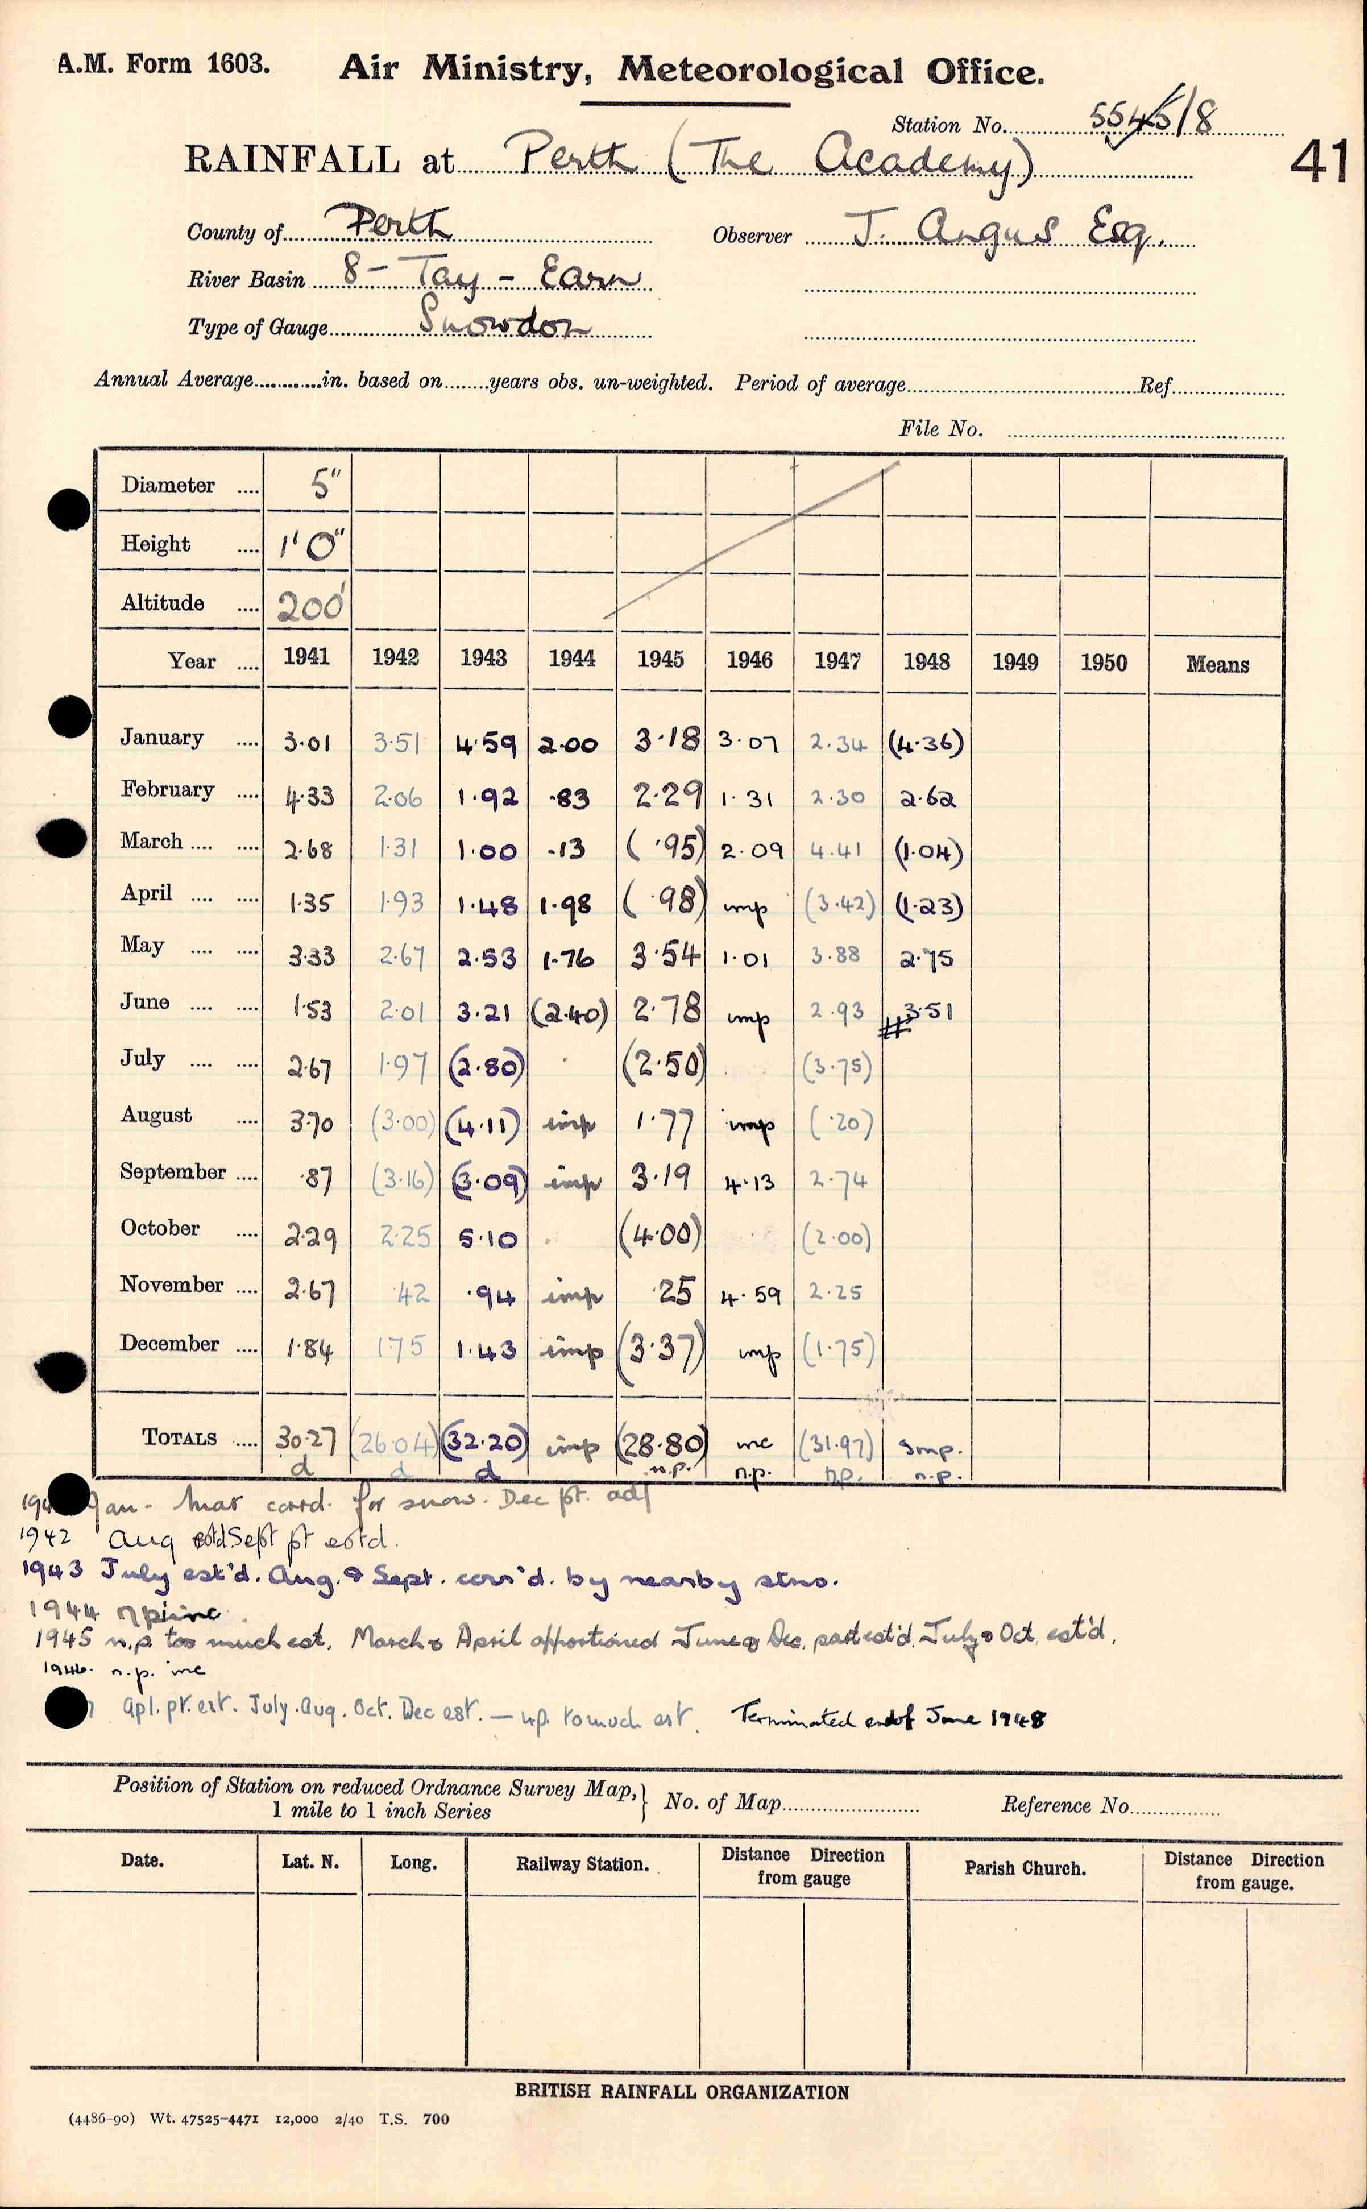 A.M. Form 1603. Air Ministry, Meteorological Office.
Station No. 5545/8
RAINFALL at Perth (The Academy) 41
County of Perth Observer J. Angus Esq.
River Basin 8 - Tay - Earn
Type of Gauge Snowdon
Annual Average............in. based on........years obs. un-weighted. Period of average............Ref............
File No. ............
Diameter .... 5"
Height .... 1' 0"
Altitude .... 200'
Year .... 1941 1942 1943 1944 1945 1946 1947 1948 1949 1950 Means
January .... 3.01 3.51 4.59 2.00 3.18 3.07 2.34 (4.36)
February .... 4.33 2.06 1.92 .83 2.29 1.31 2.30 2.62
March .... .... 2.68 1.31 1.00 .13 (.95) 2.09 4.41 (1.04)
April .... .... 1.35 1.93 1.48 1.98 (.98) imp (3.42) (1.23)
May .... .... 3.33 2.67 2.53 1.76 3.54 1.01 3.88 2.75
June .... .... 1.53 2.01 3.21 (2.40) 2.78 imp 2.93 #3.51
July .... .... 2.67 1.97 (2.80) . (2.50) . (3.75)
August .... 3.70 (3.00) (4.11) imp 1.77 imp (.20)
September .... .87 (3.16) (3.09) imp 3.19 4.13 2.74
October .... 2.29 2.25 5.10 . (4.00) (2.00)
November .... 2.67 .42 .94 imp .25 4.59 2.25
December .... 1.84 1.75 1.43 imp (3.37) imp (1.75)
TOTALS .... 30.27 (26.04) (32.20) imp (28.80) inc (31.97) imp.
d d d n.p. n.p. n.p. n.p.
194 Jan - Mar corrd. for snow. Dec pt. adj
1942 Aug estd Sept pt estd.
1943 July est'd. Aug. & Sept. corr'd. by nearby stns.
1944 np inc.
1945 n.p. too much est. March & April apportioned June & Dec. part est'd. July & Oct. est'd.
1946. n.p. inc
7 Apl. pt. est. July. Aug. Oct. Dec est. — np. to much est. Terminated end of June 1948
Position of Station on reduced Ordnance Survey Map, 1 mile to 1 inch Series } No. of Map............ Reference No............
Date. Lat. N. Long. Railway Station. Distance from gauge Direction Parish Church. Distance Direction from gauge.
BRITISH RAINFALL ORGANIZATION
(4486-90) Wt. 47525-4471 12,000 2/40 T.S. 700